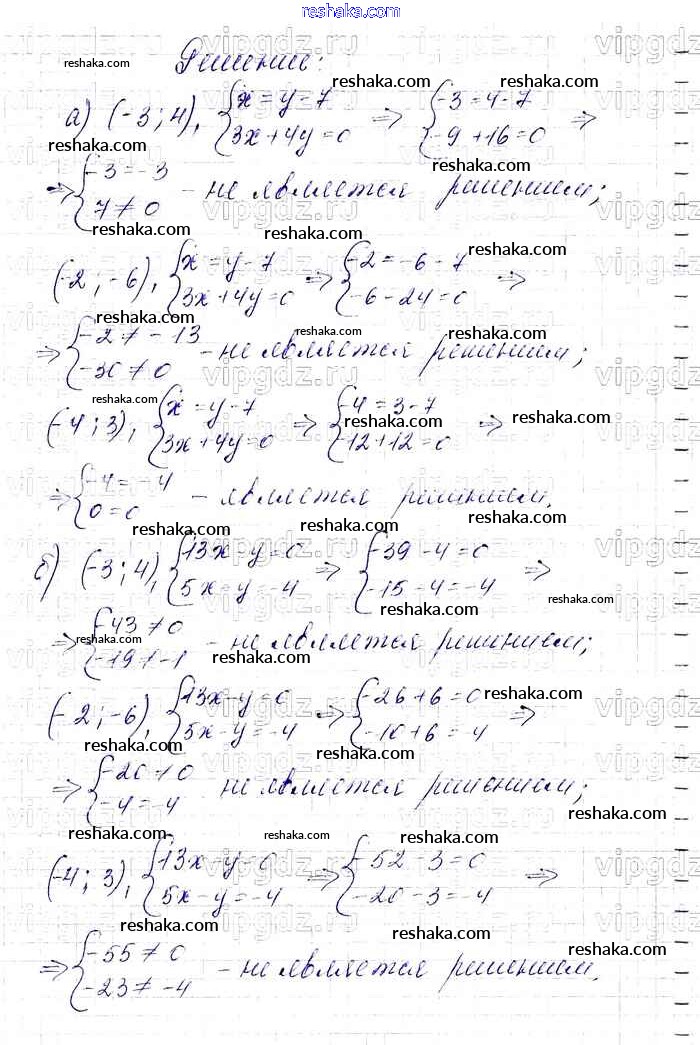 reshaka.com
Решение:
а) (-3; 4), {x = y - 7 {3x + 4y = 0 ⇒ {-3 = 4 - 7 {-9 + 16 = 0 ⇒
⇒ {-3 = -3 {7 ≠ 0 - не является решением;
(-2; -6), {x = y - 7 {3x + 4y = 0 ⇒ {-2 = -6 - 7 {-6 - 24 = 0 ⇒
⇒ {-2 ≠ -13 {-30 ≠ 0 - не является решением;
(-4; 3), {x = y - 7 {3x + 4y = 0 ⇒ {-4 = 3 - 7 {-12 + 12 = 0 ⇒
⇒ {-4 = -4 {0 = 0 - является решением.
б) (-3; 4), {13x - y = 0 {5x - y = -4 ⇒ {-39 - 4 = 0 {-15 - 4 = -4 ⇒
⇒ {-43 ≠ 0 - не является решением;
(-2; -6), {13x - y = 0 {5x - y = -4 ⇒ {-26 + 6 = 0 {-10 + 6 = -4 ⇒
⇒ {-20 ≠ 0 {-4 = -4 не является решением;
(-4; 3), {13x - y = 0 {5x - y = -4 ⇒ {-52 - 3 = 0 {-20 - 3 = -4 ⇒
⇒ {-55 ≠ 0 {-23 ≠ -4 - не является решением.